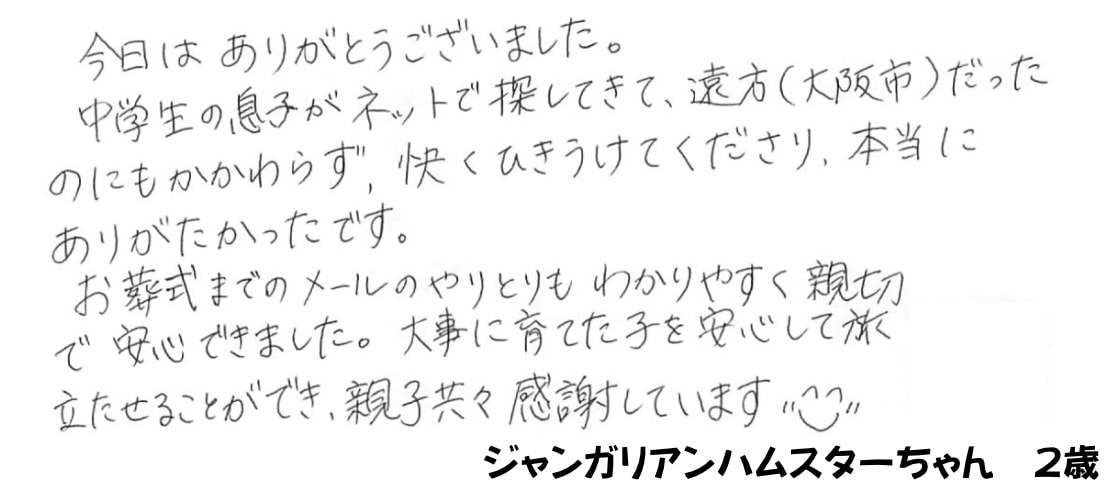 今日は ありがとうございました。
中学生の息子がネットで探してきて、遠方(大阪市)だった
のにもかかわらず,快くひきうけてくださり、本当に
ありがたかったです。
お葬式までのメールのやりとりも わかりやすく親切
で 安心できました。大事に育てた子を安心して旅
立たせることができ、親子共々 感謝しています
ジャンガリアンハムスターちゃん 2歳